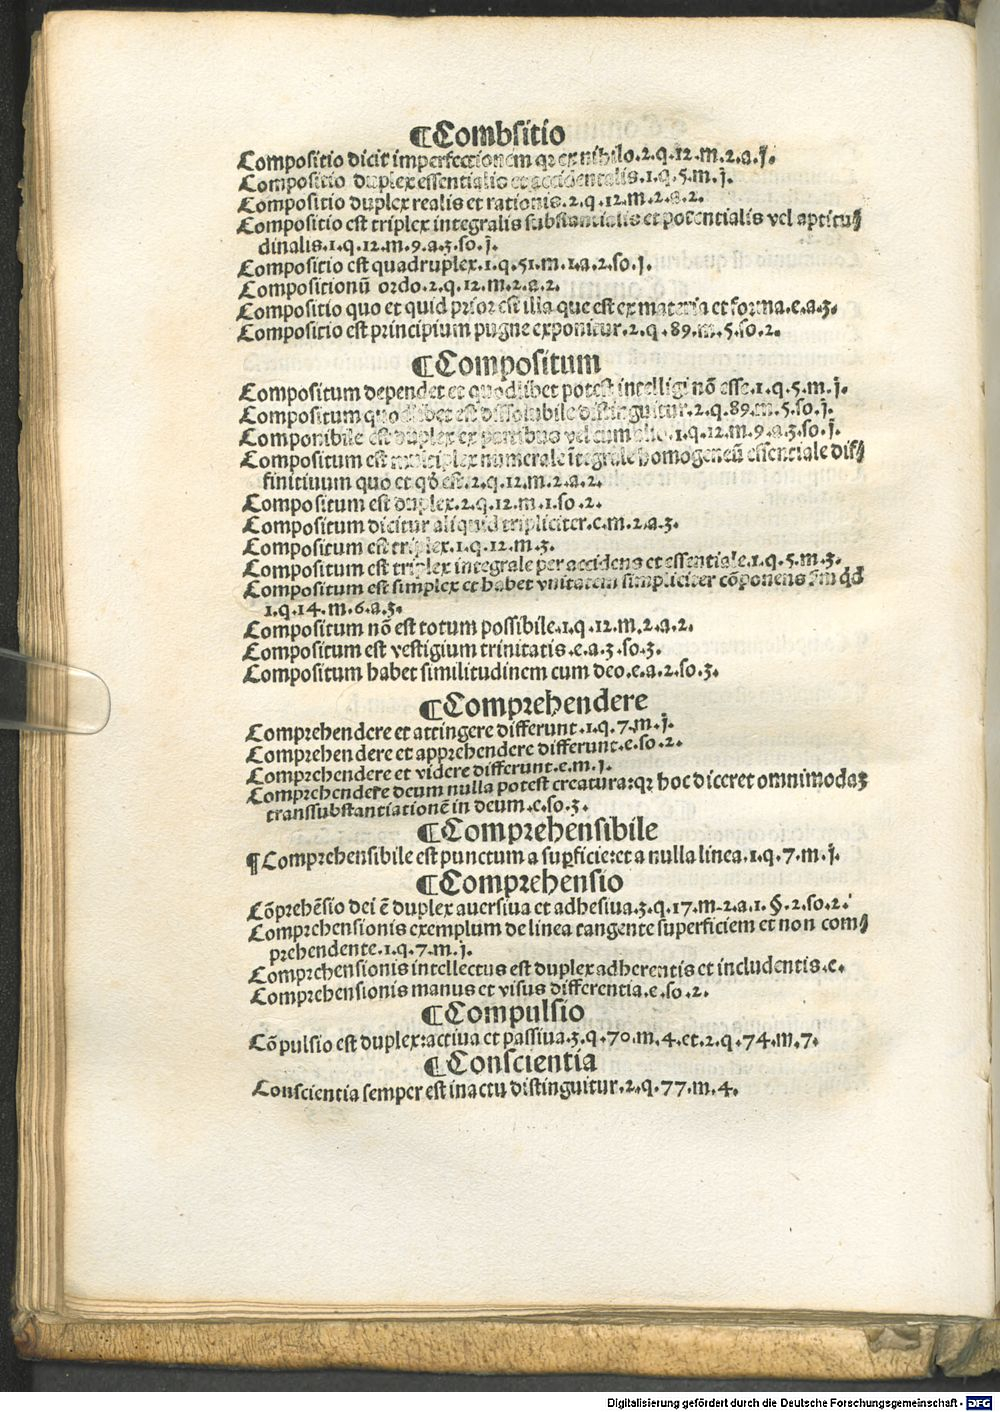 ¶Combsitio
Compositio dicit imperfectionem qr ex nihilo.2.q.12.m.2.a.j.
Compositio duplex essentialis et accidentalis.1.q.5.m.j.
Compositio duplex realis et rationis.2.q.12.m.2.a.2.
Compositio est triplex integralis substantialis et potentialis vel aptitu⸗
dinalis.1.q.12.m.9.a.3.so.j.
Compositio est quadruplex.1.q.51.m.1.a.2.so.j.
Compositionū ordo.2.q.12.m.2.a.2.
Compositio quo et quid prior est illa que est ex materia et forma.e.a.3.
Compositio est principium pugne exponitur.2.q.89.m.5.so.2.
¶Compositum
Compositum dependet et quodlibet potest intelligi nō esse.1.q.5.m.j.
Compositum quodlibet est dissolubile distinguitur.2.q.89.m.5.so.j.
Componibile est duplex ex partibus vel cum alio.1.q.12.m.9.a.3.so.j.
Compositum est multiplex numerale ītegrale homogeneū essentiale dif⸗
finitiuum quo et qd̓ est.2.q.12.m.2.a.2.
Compositum est duplex.2.q.12.m.1.so.2.
Compositum dicitur aliquid tripliciter.e.m.2.a.3.
Compositum est triplex.1.q.12.m.3.
Compositum est triplex integrale per accidens et essentiale.1.q.5.m.3.
Compositum est simplex et habet vnitatem simpliciter cōponens fm qd
1.q.14.m.6.a.3.
Compositum nō est totum possibile.1.q.12.m.2.a.2.
Compositum est vestigium trinitatis.e.a.3.so.3.
Compositum habet similitudinem cum deo.e.a.2.so.3.
¶Comprehendere
Comprehendere et attingere differunt.1.q.7.m.j.
Comprehendere et apprehendere differunt.e.so.2.
Comprehendere et videre differunt.e.m.j.
Comprehendere deum nulla potest creatura:qr hoc diceret omnimodaꝫ
transsubstantiationē in deum.e.so.3.
¶Comprehensibile
¶Comprehensibile est punctum a suꝑficie:et a nulla linea.1.q.7.m.j.
¶Comprehensio
Cōprehēsio dei ē duplex auersiua et adhesiua.3.q.17.m.2.a.1.§.2.so.2.
Comprehensionis exemplum de linea tangente superficiem et non com⸗
prehendente.1.q.7.m.j.
Comprehensionis intellectus est duplex adherentis et includentis.e.
Comprehensionis manus et visus differentia.e.so.2.
¶Compulsio
Cōpulsio est duplex:actiua et passiua.3.q.70.m.4.et.2.q.74.m.7.
¶Conscientia
Conscientia semper est in actu distinguitur.2.q.77.m.4.
Digitalisierung gefördert durch die Deutsche Forschungsgemeinschaft - DFG